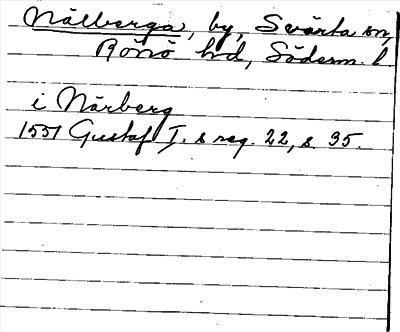 Nälberga, by, Svärta sn,
Rönö hd, Söderm. l
i Närberg
1551 Gustaf I. s reg. 22, s. 35.